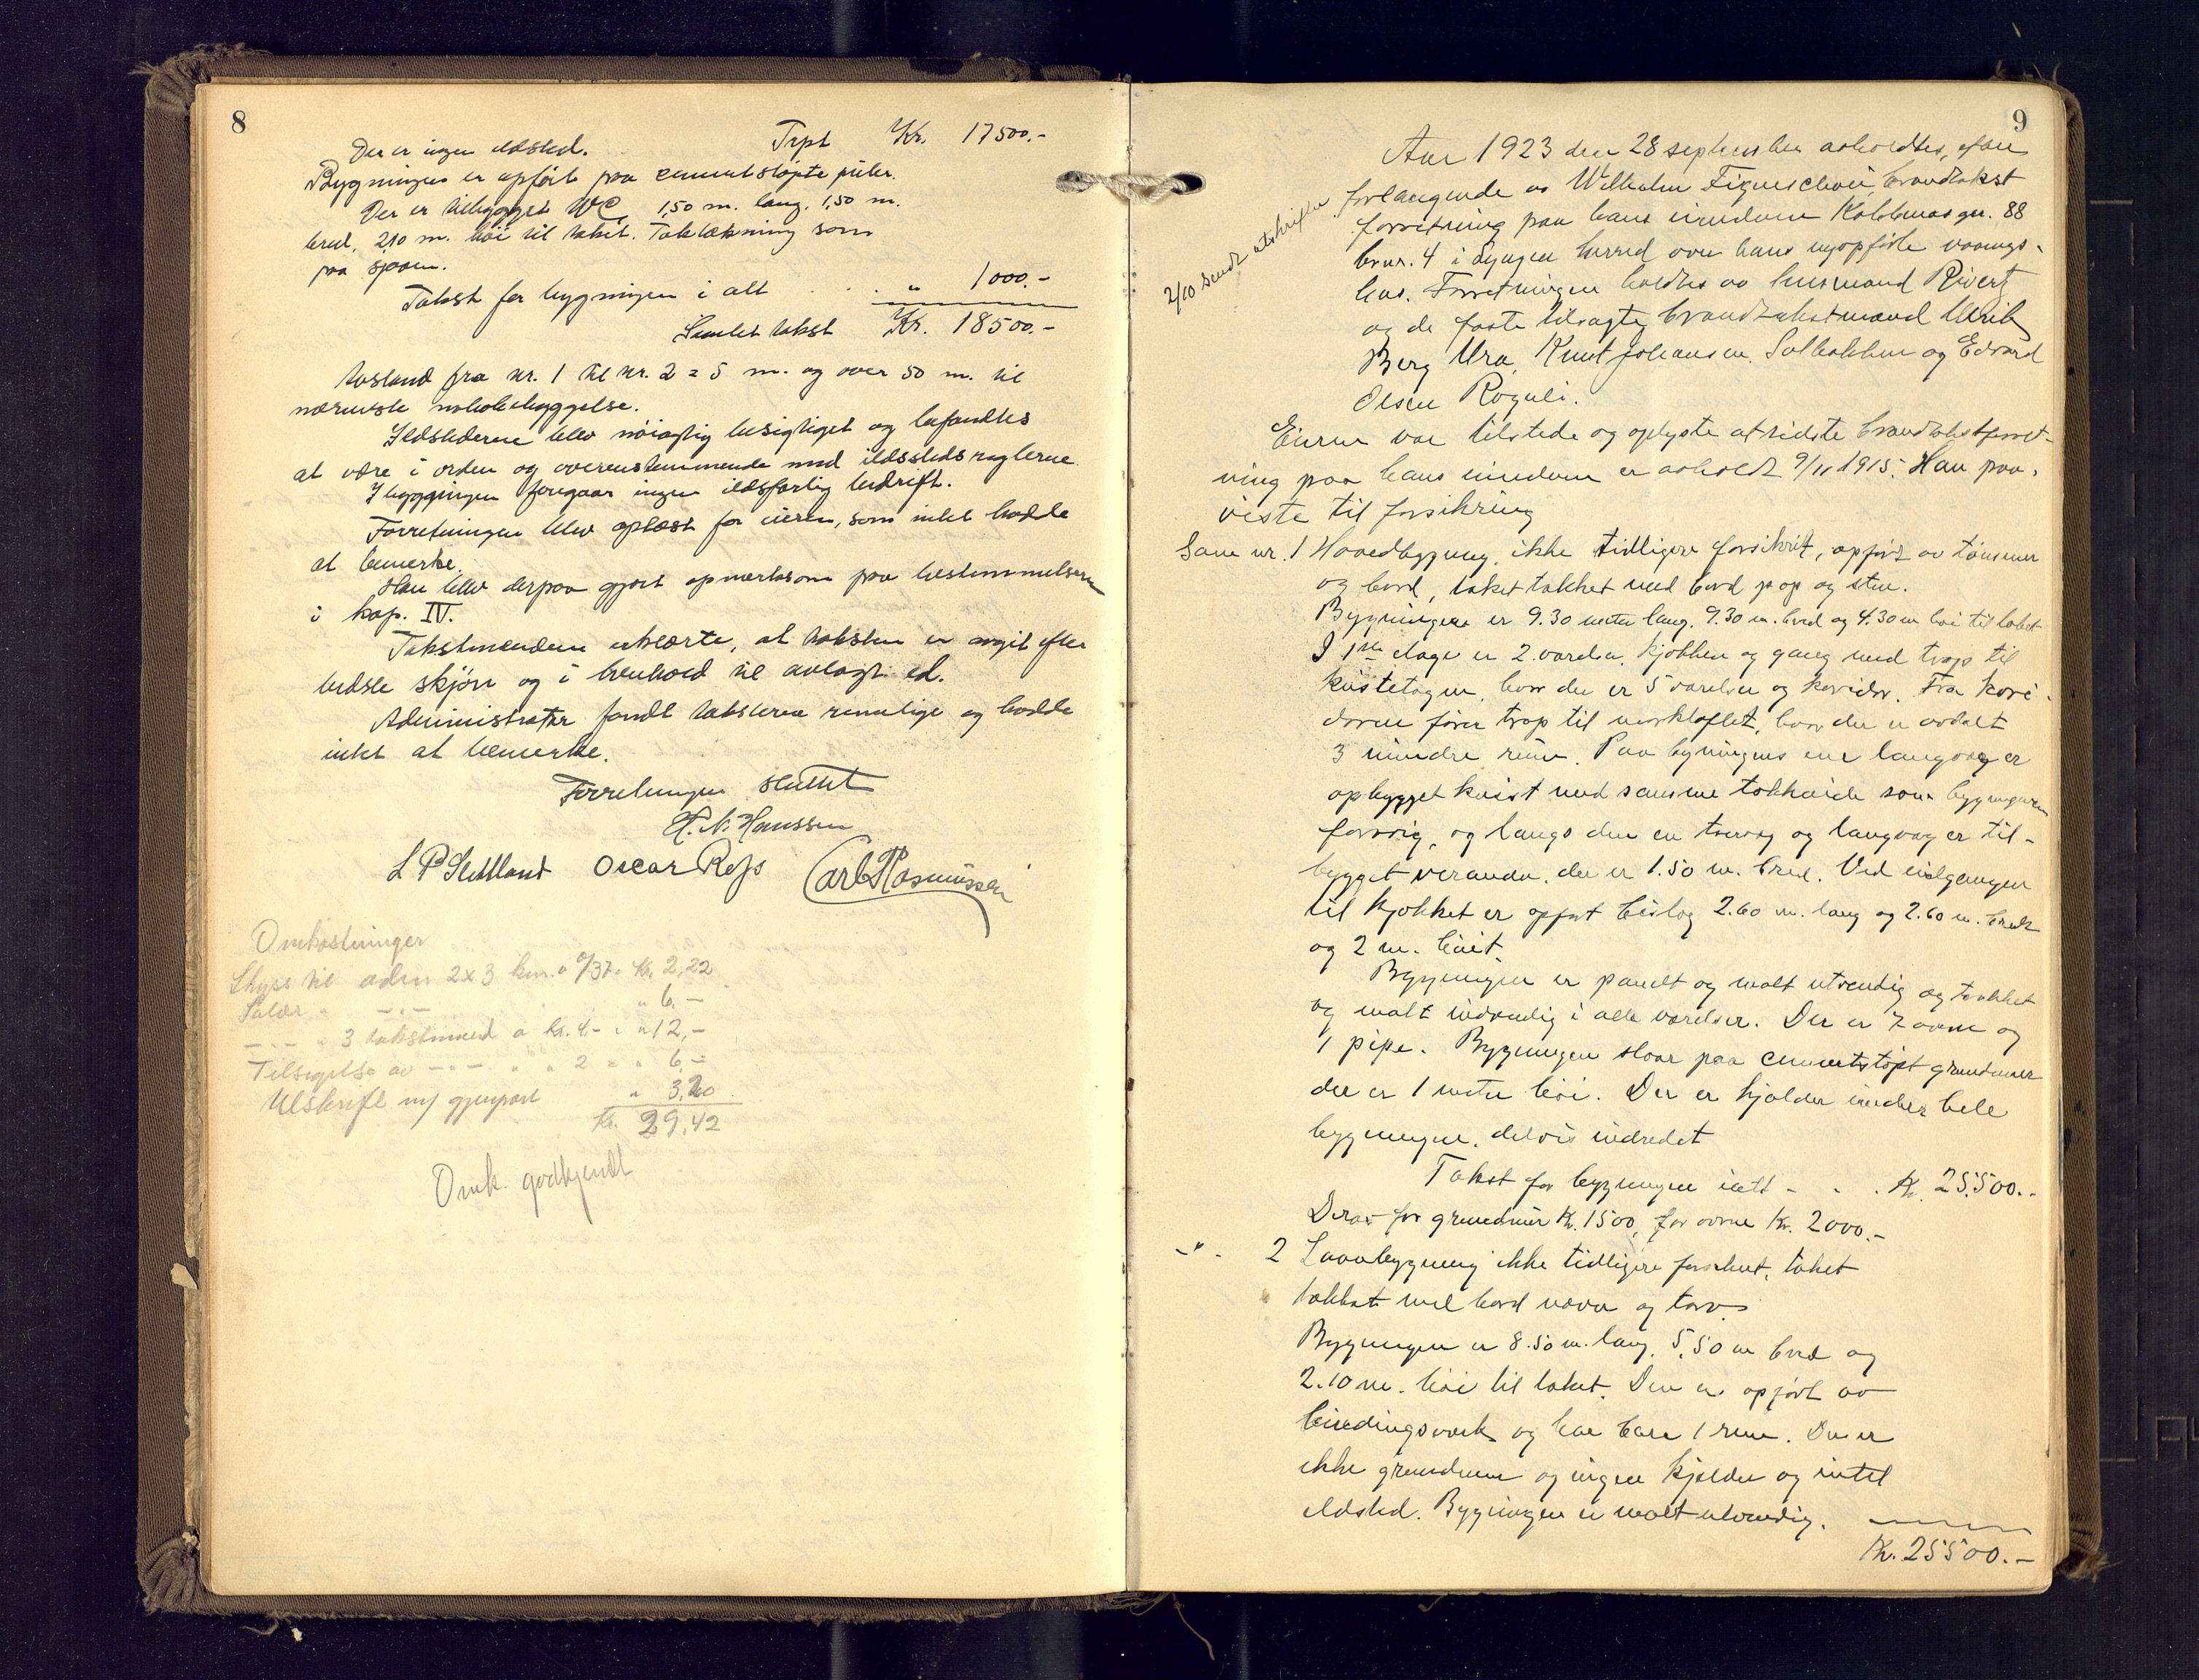 8
Der er ingen ildsted. Trpt Kr. 17500.-
Bygningen er opført paa cementstøpte piler.
Der er tilbygget WC, 1,50 m. lang, 1,50 m.
bred, 2,10 m. höi til taket. Taktækning som
paa sjaaen.
Takst for bygningen i alt . . „ 1000.-
Samlet takst Kr. 18500.-
Avstand fra nr. 1 til nr. 2 = 5 m. og over 50 m. til
nærmeste nabobebyggelse.
Ildstederne blev nöiagtig besigtiget og befandtes
at være i orden og overensstemmende med ildstedsreglerne.
I bygningen foregaar ingen ildsfarlig bedrift.
Forretningen blev oplæst for eieren, som intet hadde
at bemerke.
Han blev derpaa gjort opmerksom paa bestemmelserne
i kap. IV.
Takstmændene erklærte, at taksten er avgit efter
bedste skjøn og i henhold til avlagt ed.
Administrator fandt taksterne rimelige og hadde
intet at bemerke.
Forretningen sluttet
H. N. Hanssen
L P Slettland Oscar Rejs Carl Rasmüssen
Omkostninger
Skyss til adm 2x3 km. a /37 Kr. 2,22
Salær „ -„- „ 6,-
-„- „ 3 takstmænd a kr. 4.- „ 12,-
Tilsigelse av -„- „ „ 2 = „ 6,-
Utskrift m/ gjenpart „ 3,20
Kr. 29,42
Omk. godkjendt
9
2/10 sendt utskrifter
Aar 1923 den 28 september avholdtes, efter
forlangende av Wilhelm Figenschou, brandtakst
forretning paa hans eiendom Kolbmas gr. 88
brnr. 4 i Lyngen herred over hans nyopførte vaanings-
hus. Forretningen holdtes av lensmand Rivertz
og de faste tilsagte brandtakstmænd Ulrik
Berg Ura, Knut Johansen Solbakken og Edvard
Olsen Roguli.
Eieren var tilstede og oplyste at sidste brandtakstforret-
ning paa hans eiendom er avholdt 9/11 1915. Han paa-
viste til forsikring
Som nr. 1 Hovedbygning, ikke tidligere forsikret, opført av tömmer
og bord, taket tækket med bord pap og sten.
Bygningen er 9.30 meter lang, 9.30 m. bred og 4.30 m höi til taket
I 1ste etage er 2 værelser, kjøkken og gang med trap til
kvistetagen, hvor der er 5 værelser og koridor. Fra kori-
doren fører trap til mørkloftet, hvor der er avdelt
3 mindre rum. Paa bygningens ene langvæg er
opbygget kvist med samme takhöide som bygningen
forøvrig, og langs den en tvervæg og langvæg er til-
bygget veranda, der er 1.50 m. bred. Ved indgangen
til kjøkket er opført bislag 2.60 m. lang og 2.60 m. bredt
og 2 m. höit.
Bygningen er panelt og malt utvendig og trækket
og malt indvendig i alle værelser. Der er 7 ovne og
1 pipe. Bygningen staar paa cementstøpt grundmur
der er 1 meter höi. Der er kjælder under hele
bygningen, delvis indredet
Takst for bygningen ialt - - . Kr. 25500.-
Derav for grundmur Kr. 1500, for ovne Kr. 2000.-
-„- 2 Laavebygning ikke tidligere forsikret, taket
tækket med bord næver og torv.
Bygningen er 8.50 m. lang, 5,50 m bred og
2.10 m. höi til taket. Den er opført av
bindingsverk og har bare 1 rum. Der er
ikke grundmur og ingen kjælder og intet
ildsted. Bygningen er malt utvendig.
Kr. 25500.-